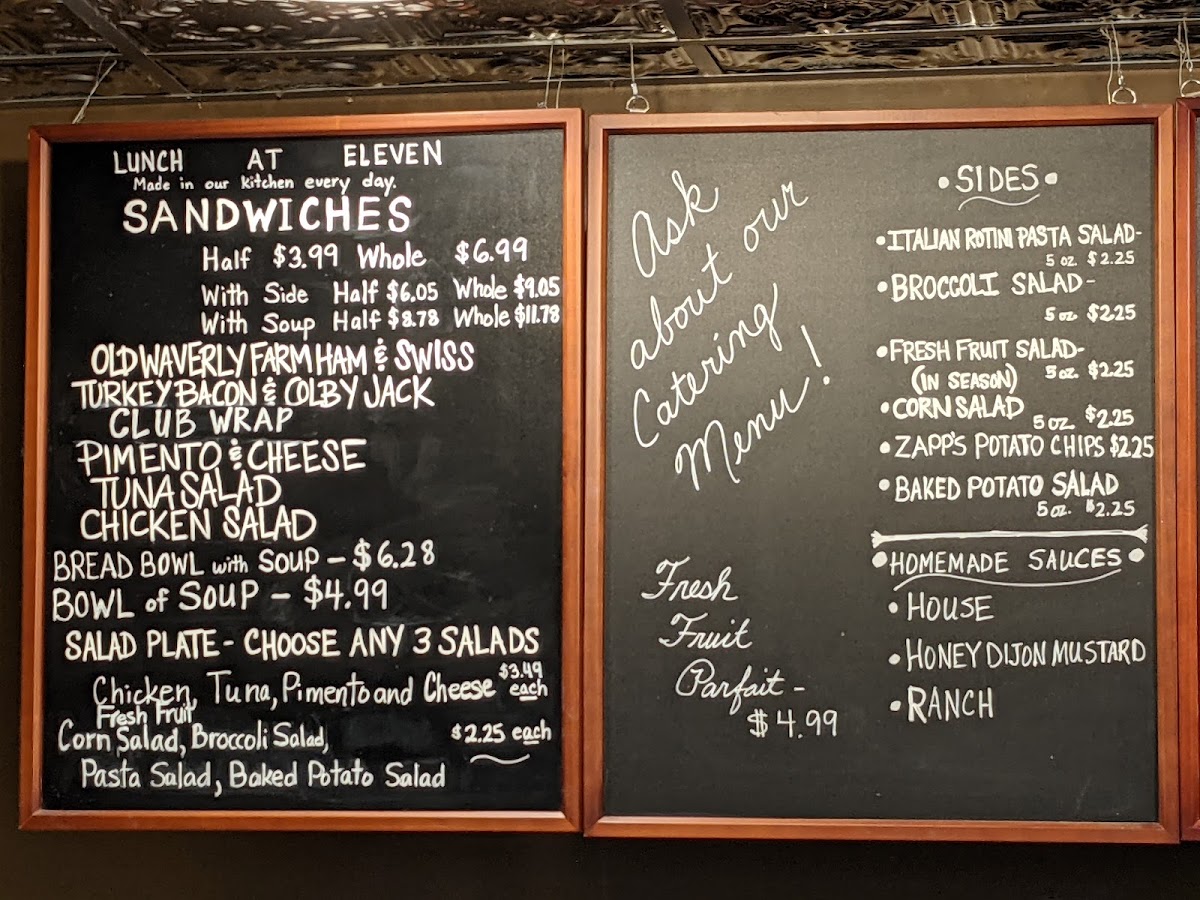 LUNCH AT ELEVEN
Made in our kitchen every day.
SANDWICHES
Half $3.99 Whole $6.99
With Side Half $6.05 Whole $9.05
With Soup Half $8.78 Whole $11.78
OLD WAVERLY FARM HAM & SWISS
TURKEY BACON & COLBY JACK
CLUB WRAP
PIMENTO & CHEESE
TUNA SALAD
CHICKEN SALAD
BREAD BOWL with SOUP - $6.28
BOWL of SOUP - $4.99
SALAD PLATE - CHOOSE ANY 3 SALADS
Chicken, Tuna, Pimento and Cheese $3.49 each
Fresh Fruit
Corn Salad, Broccoli Salad, $2.25 each
Pasta Salad, Baked Potato Salad
Ask
about our
Catering
Menu!
Fresh
Fruit
Parfait -
$4.99
• SIDES •
• ITALIAN ROTINI PASTA SALAD -
5 oz $2.25
• BROCCOLI SALAD -
5 oz $2.25
• FRESH FRUIT SALAD -
(IN SEASON) 5 oz. $2.25
• CORN SALAD 5 oz. $2.25
• ZAPP'S POTATO CHIPS $2.25
• BAKED POTATO SALAD
5 oz. $2.25
• HOMEMADE SAUCES •
• HOUSE
• HONEY DIJON MUSTARD
• RANCH